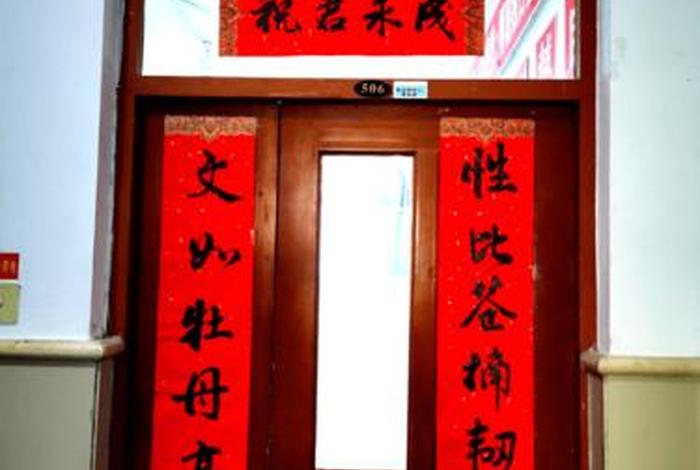 祝君
506
性比苍楠韧
文如牡丹